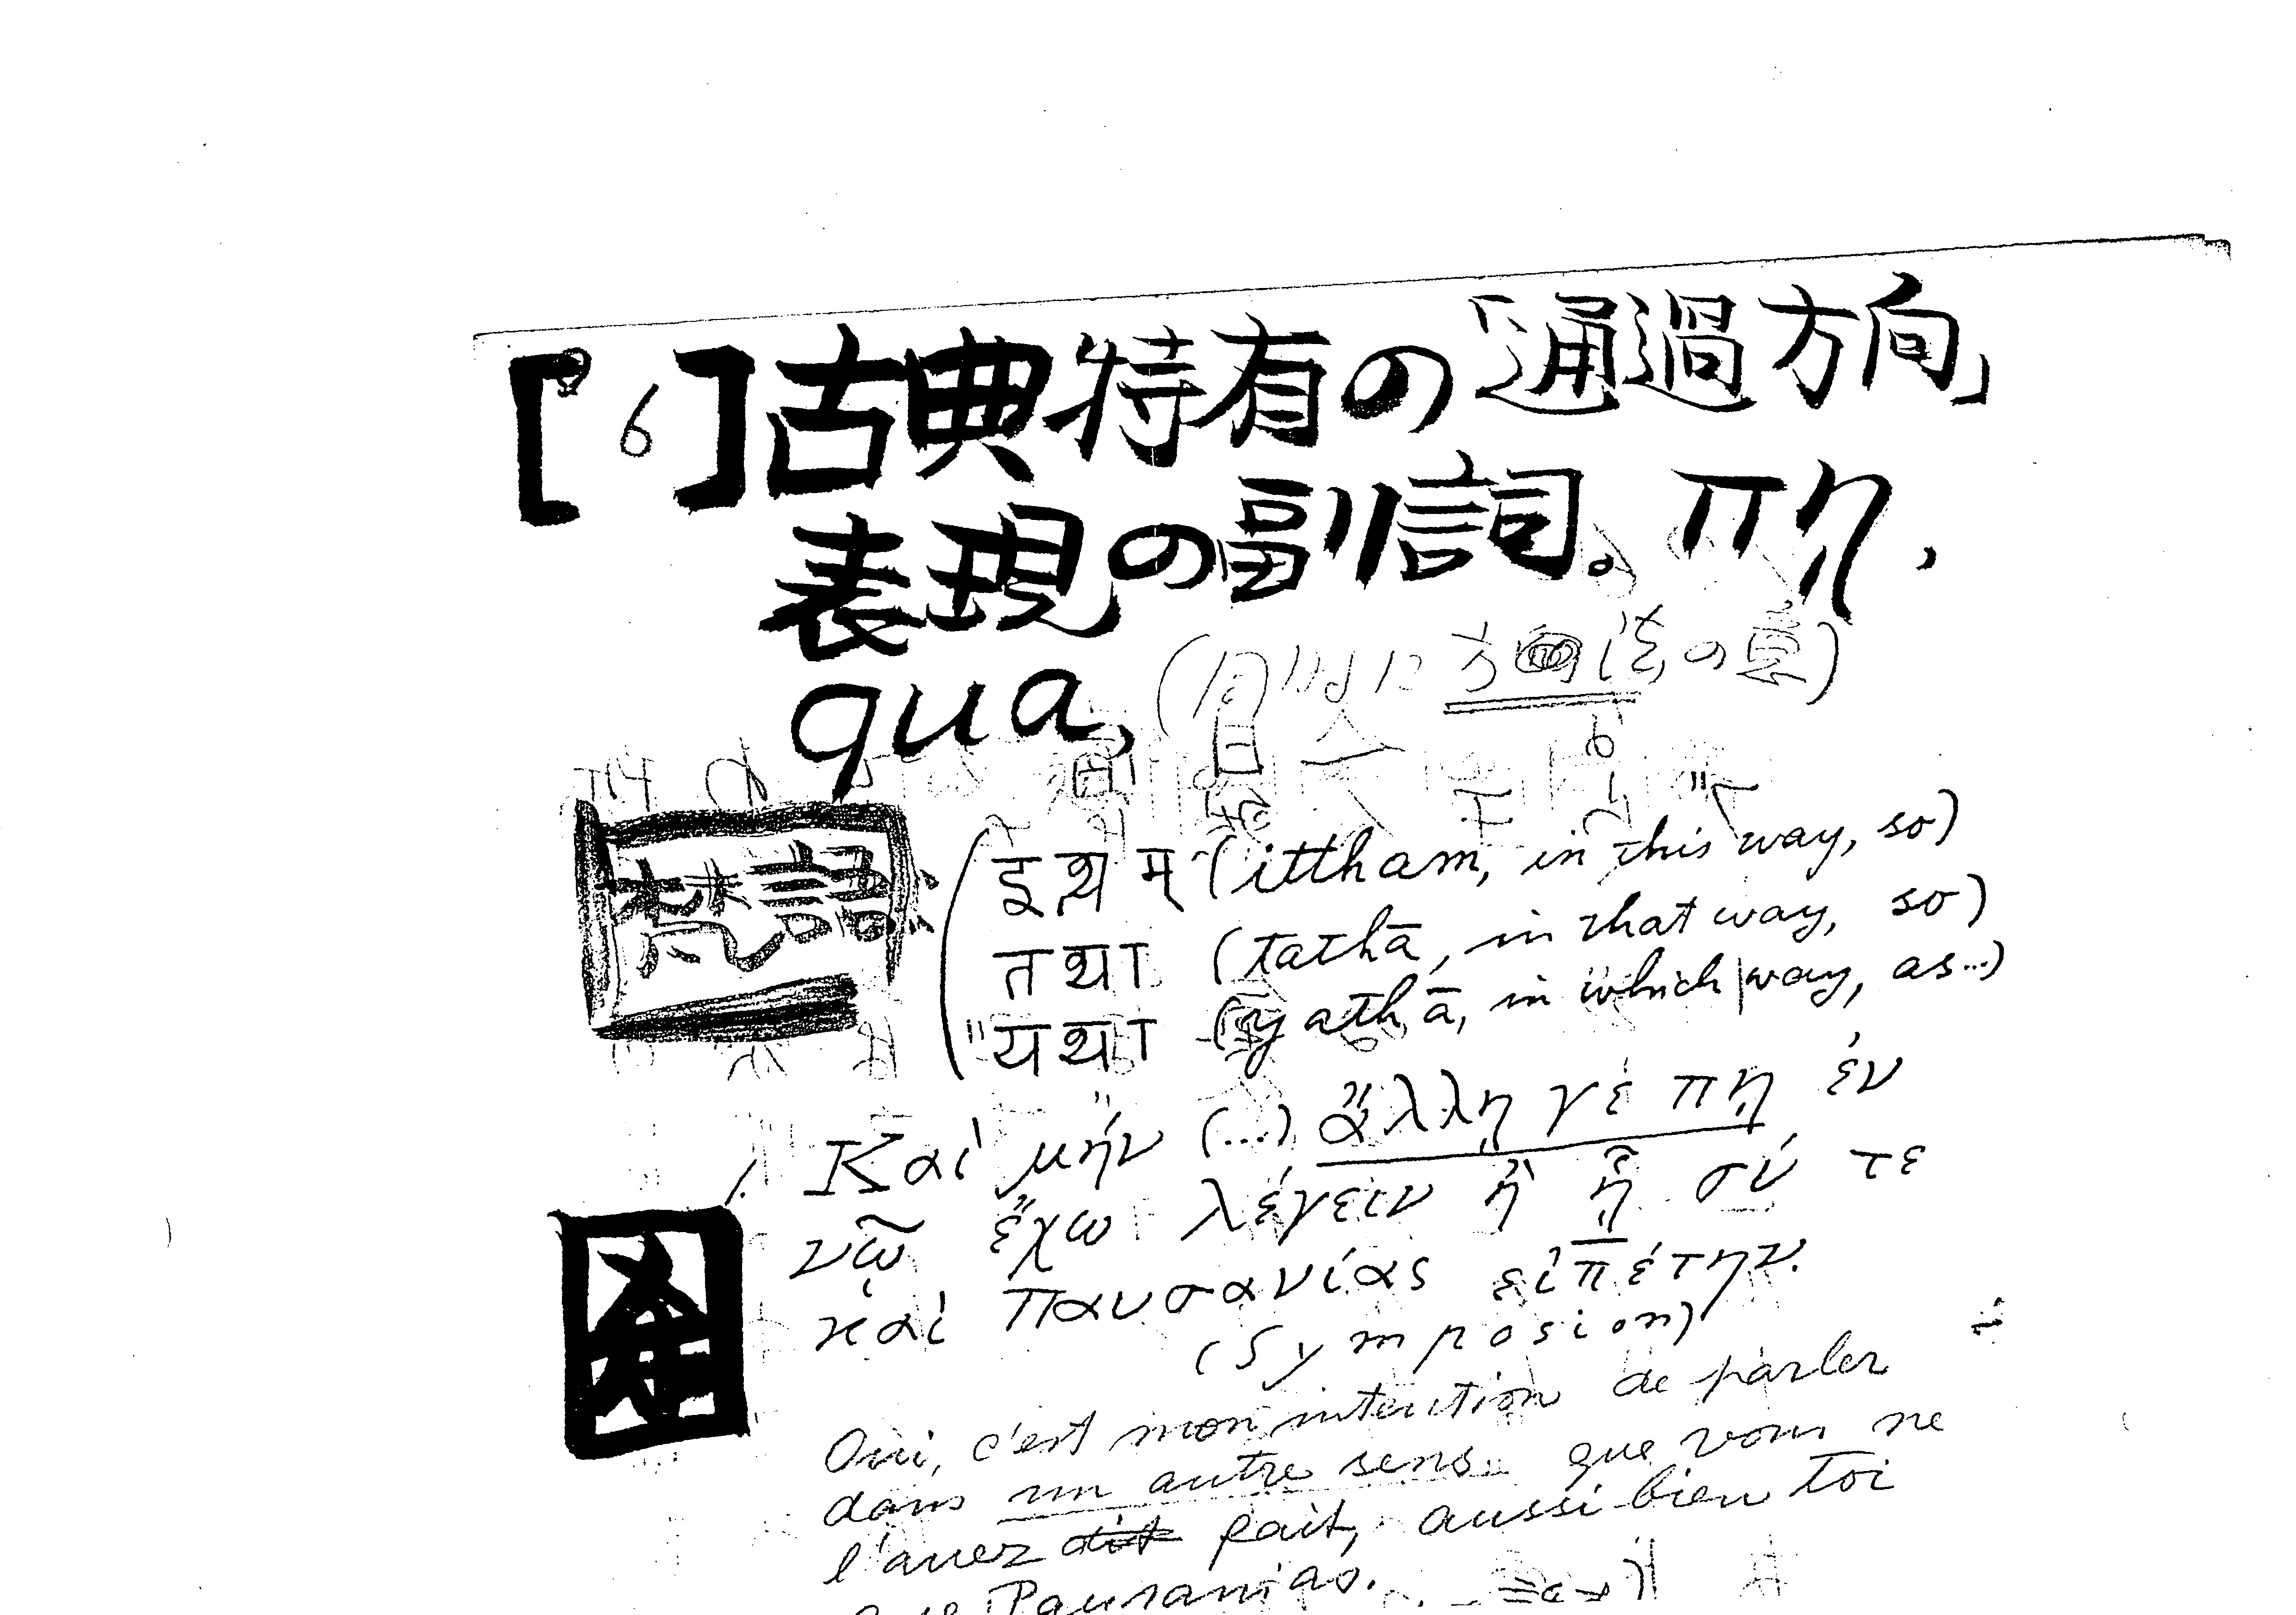 [6]古典特有の「通過方向」
表現の副詞。πῃ,
qua,
梵語
इत्थम् (ittham, in this way, so)
तथा (tathā, in that way, so)
यथा (yathā, in which way, as...)
1. Καὶ μήν (...) ἄλλῃ γέ πῃ ἐν
νῷ ἔχω λέγειν ἢ ᾗ σύ τε
καὶ Παυσανίας εἰπέτην.
(Symposion)
Oui, c'est mon intention de parler
dans un autre sens que vous ne
l'avez fait, aussi bien toi
que Pausanias.